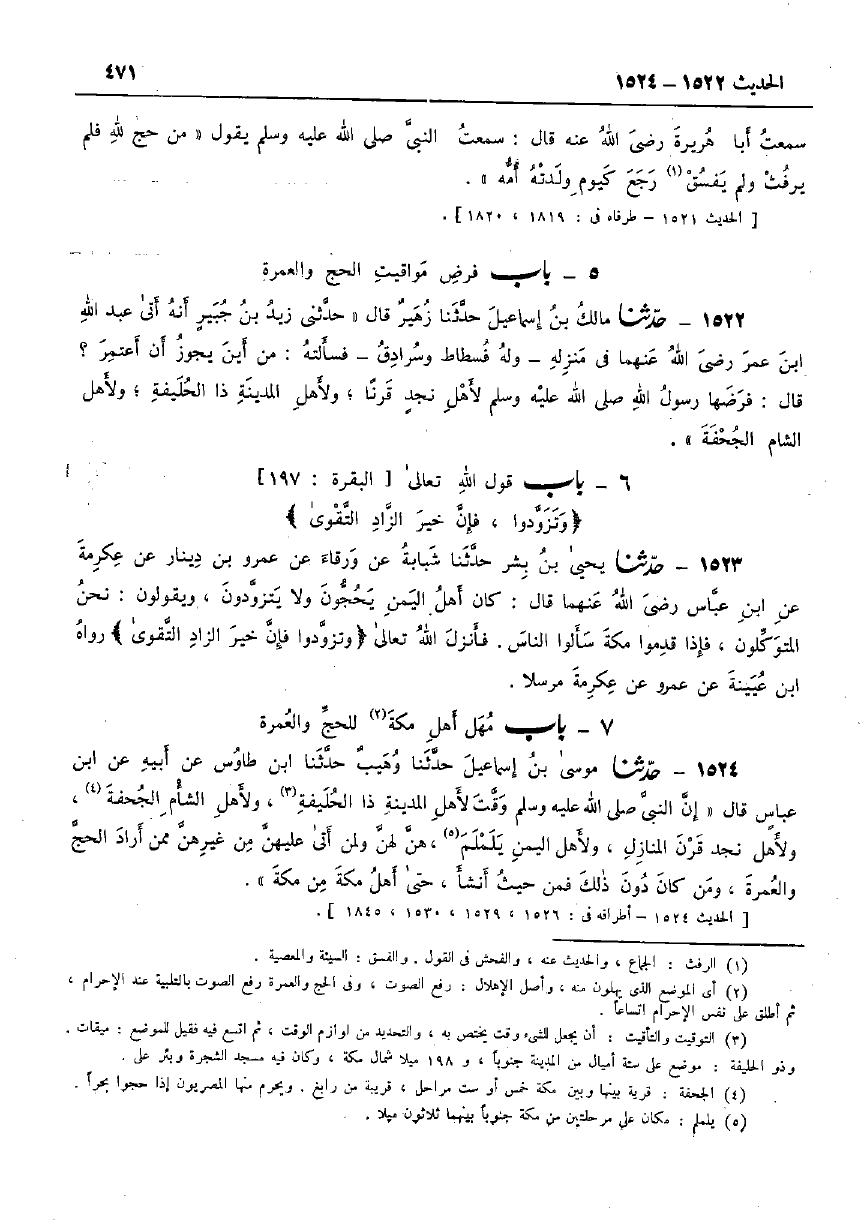 الحديث ١٥٢٢ – ١٥٢٤
٤٧١
سمعتُ أبا هُريرةَ رضىَ اللهُ عنه قال : سمعتُ النبىَّ صلى الله عليه وسلم يقول « من حجّ للهِ فلم
يرفُثْ ولم يَفسُقْ(١) رَجَعَ كَيومِ ولَدتْهُ أُمُّه » .
[ الحديث ١٥٢١ – طرفاه فى : ١٨١٩ ، ١٨٢٠ ] .
٥ – باب فرضِ مَواقيتِ الحج والعمرةِ
١٥٢٢ – حدّثنا مالكُ بنُ إسماعيلَ حدَّثَنا زُهَيرٌ قال « حدَّثنى زيدُ بنُ جُبَيرٍ أنهُ أتىٰ عبد اللهِ
ابنَ عمرَ رضىَ اللهُ عَنهما فى مَنزِلهِ – ولهُ فُسطاط وسُرادِقُ – فسألتهُ : من أينَ يجوزُ أن أعتمِرَ ؟
قال : فرَضَها رسولُ اللهِ صلى الله عليْه وسلم لأهْلِ نجدٍ قَرنًا ؛ ولأهلِ المدينَةِ ذا الحُلَيفةِ ؛ ولأهل
الشام الجُحْفَةَ » .
٦ – باب قول اللهِ تعالىٰ [ البقرة : ١٩٧ ]
﴿ وَتَزَوَّدوا ، فإنَّ خيرَ الزَّادِ التَّقْوىٰ ﴾
١٥٢٣ – حدّثنا يحيىٰ بنُ بِشر حدَّثَنا شَبابةُ عن وَرقاءَ عن عمرو بن دِينار عن عِكرِمةَ
عن ابنِ عبَّاس رضىَ اللهُ عَنهما قال : كان أهلُ اليمنِ يَحُجُّونَ ولا يَتزوَّدونَ ، ويقولون : نحنُ
المتوَكِّلون ، فإذا قدِموا مكةَ سَألوا الناسَ . فـأنزلَ اللهُ تعالىٰ ﴿ وتزوَّدوا فإنَّ خيرَ الزاد التَّقوىٰ ﴾ رواهُ
ابن عُيَينةَ عن عمرو عن عِكرِمةَ مرسلا .
٧ – باب مُهَل أهلِ مكةَ(٢) للحجِّ والعُمرة
١٥٢٤ – حدّثنا موسىٰ بنُ إسماعيلَ حدَّثَنا وُهَيبٌ حدَّثَنا ابن طاوُس عن أبيهِ عن ابن
عباسٍ قال « إنَّ النبىَّ صلى الله عليه وسلم وَقَّتَ لأهلِ المدينةِ ذا الحُلَيفةِ(٣) ، ولأهلِ الشأْمِ الجُحفةَ(٤) ،
ولأهل نجد قَرْنَ المنازِلِ ، ولأهل اليمنِ يَلَمْلَمَ(٥) ، هنَّ لهنَّ ولمن أتىٰ عليهنَّ مِن غيرِهنَّ ممن أرادَ الحجَّ
والعُمرةَ ، ومَن كانَ دُونَ ذٰلكَ فمن حيثُ أنشأَ ، حتىٰ أهلُ مكةَ مِن مكةَ » .
[ الحديث ١٥٢٤ – أطرافه فى : ١٥٢٦ ، ١٥٢٩ ، ١٥٣٠ ، ١٨٤٥ ] .
(١) الرفث : الجماع ، والحديث عنه ، والفحش فى القول . والفسق : السيئة والمعصية .
(٢) أى الموضع الذى يهلون منه ، وأصل الإهلال : رفع الصوت ، وفى الحج والعمرة رفع الصوت بالتلبية عند الإحرام ،
ثم أطلق على نفس الإحرام اتساعاً .
(٣) التوقيت والتأقيت : أن يجعل للشىء وقت يختص به ، والتحديد من لوازم الوقت ، ثم اتسع فيه فقيل للموضع : ميقات .
وذو الحليفة : موضع على ستة أميال من المدينة جنوباً ، و ١٩٨ ميلا شمال مكة ، وكان فيه مسجد الشجرة وبئر على .
(٤) الجحفة : قرية بينها وبين مكة خمس أو ست مراحل ، قريبة من رابغ . ويحرم منها المصريون إذا حجوا بحراً .
(٥) يلملم : مكان على مرحلتين من مكة جنوباً بينهما ثلاثون ميلا .